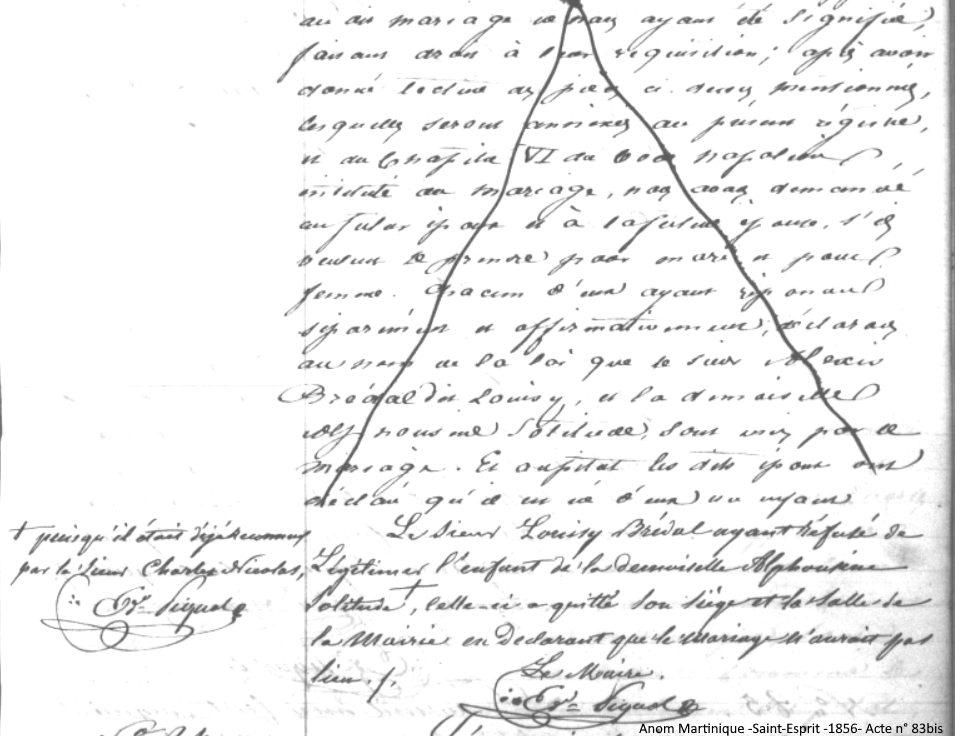 au dit mariage ne nous ayant été signifiée,
faisant droit à leur réquisition; après avoir
donné lecture des pièces ci dessus mentionnées,
lesquelles seront annexées au présent régistre,
et du Chapitre VI du Code Napoléon,
intitulé du mariage, nous avons demandé
au futur époux et à la future épouse, s'ils
veulent se prendre pour mari et pour
femme. Chacun d'eux ayant répondu
séparément et affirmativement, déclarons
au nom de la loi que le sieur Alexis
Brédal dit Louisy, et la demoiselle
Alphonsine Solitude, sont unis par le
mariage. Et aussitôt les dits époux ont
déclaré qu'il est né d'eux un enfant
Le Sieur Louisy Brédal ayant refusé de
Légitimer l'enfant de la demoiselle Alphonsine
Solitude +, celle-ci a quitté son siège et la salle de
la Mairie en déclarant que le mariage n'aurait pas
lieu ./.
Le Maire.
+ puisqu'il était déjà reconnu
par le Sieur Charles Nicolas,
Anom Martinique -Saint-Esprit -1856- Acte n° 83bis